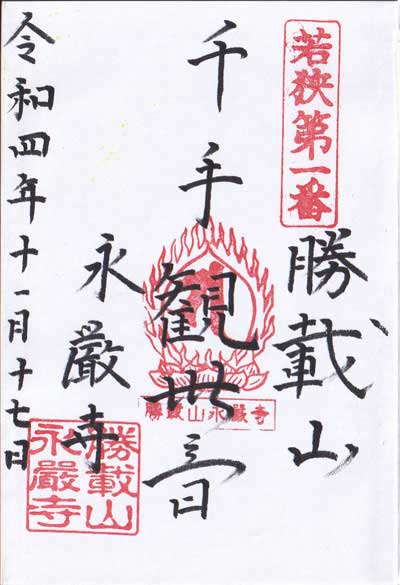 若狭第一番
勝載山
千手観世音
勝載山永厳寺
永厳寺
勝載山
永厳寺
令和四年十一月十七日